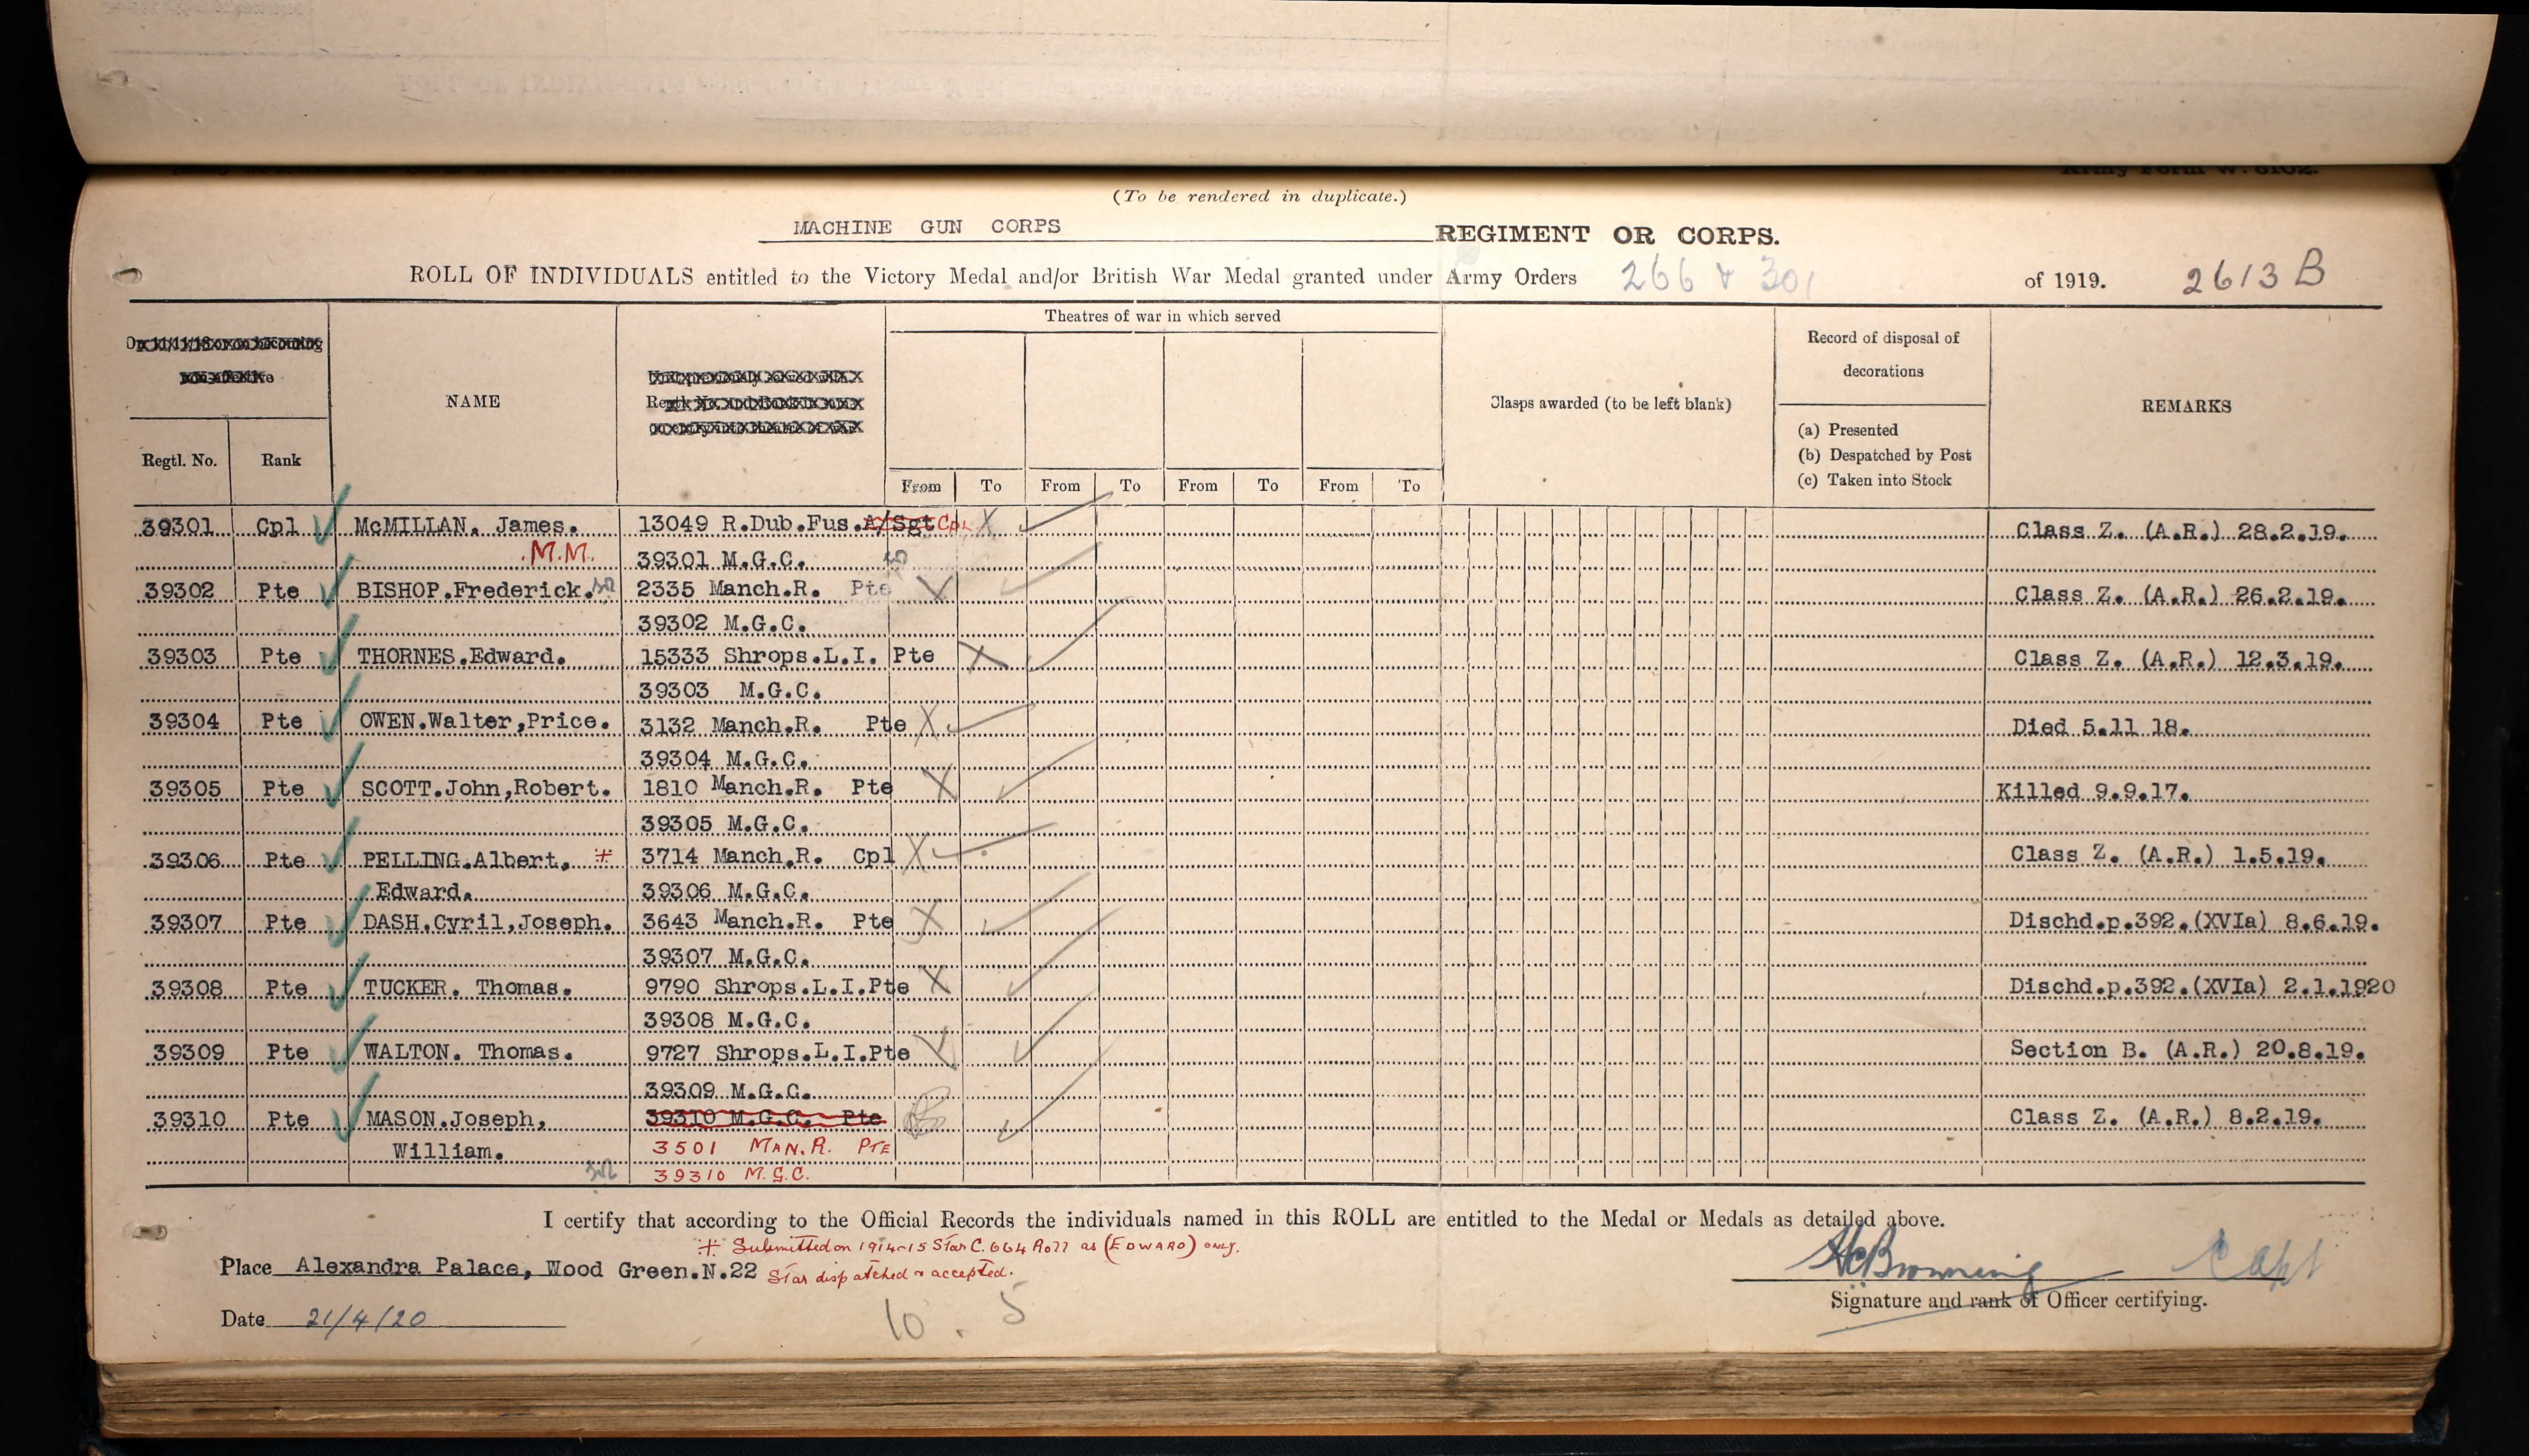 (To be rendered in duplicate.)
MACHINE GUN CORPS REGIMENT OR CORPS.
ROLL OF INDIVIDUALS entitled to the Victory Medal and/or British War Medal granted under Army Orders 266 & 301 of 1919. 2613 B
Theatres of war in which served
Record of disposal of
decorations
NAME
Clasps awarded (to be left blank)
REMARKS
(a) Presented
(b) Despatched by Post
(c) Taken into Stock
Regtl. No. Rank
From To From To From To From To
39301 Cpl McMILLAN. James. 13049 R.Dub.Fus.A/Sgt CPL Class Z. (A.R.) 28.2.19.
M.M. 39301 M.G.C.
39302 Pte BISHOP.Frederick. 2335 Manch.R. Pte Class Z. (A.R.) 26.2.19.
39302 M.G.C.
39303 Pte THORNES.Edward. 15333 Shrops.L.I. Pte Class Z. (A.R.) 12.3.19.
39303 M.G.C.
39304 Pte OWEN.Walter,Price. 3132 Manch.R. Pte Died 5.11 18.
39304 M.G.C.
39305 Pte SCOTT.John,Robert. 1810 Manch.R. Pte Killed 9.9.17.
39305 M.G.C.
39306 Pte PELLING.Albert, ‡ 3714 Manch.R. Cpl Class Z. (A.R.) 1.5.19.
Edward. 39306 M.G.C.
39307 Pte DASH.Cyril,Joseph. 3643 Manch.R. Pte Dischd.p.392.(XVIa) 8.6.19.
39307 M.G.C.
39308 Pte TUCKER. Thomas. 9790 Shrops.L.I.Pte Dischd.p.392.(XVIa) 2.1.1920
39308 M.G.C.
39309 Pte WALTON. Thomas. 9727 Shrops.L.I.Pte Section B. (A.R.) 20.8.19.
39309 M.G.C.
39310 Pte MASON.Joseph, 39310 M.G.C. Pte Class Z. (A.R.) 8.2.19.
William. 3501 MAN.R. PTE
39310 M.G.C.
I certify that according to the Official Records the individuals named in this ROLL are entitled to the Medal or Medals as detailed above.
‡ Submitted on 1914-15 Star C. 664 Roll as (EDWARD) ONLY.
Place Alexandra Palace, Wood Green.N.22 Star dispatched & accepted.
HCBrowning Capt
Signature and rank of Officer certifying.
Date 21/4/20
10. 5